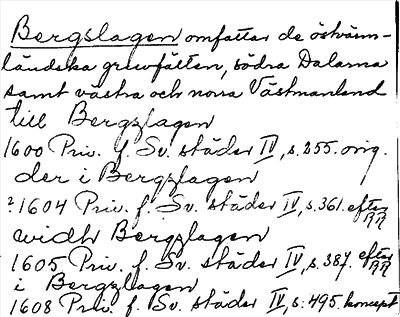 Bergslagen omfattar de östvärm-
ländska gruvfälten, södra Dalarna
samt västra och norra Västmanland
till Bergzlagen
1600 Priv. f. Sv. städer IV, s. 355. orig.
der i Bergzlagen
? 1604 Priv. f. Sv. städer IV, s. 361. efter RR
widh Bergzlagen
1605 Priv. f. Sv. städer IV, s. 387. efter RR
i Bergzlagen
1608 Priv. f. Sv. städer IV, s. 495. koncept